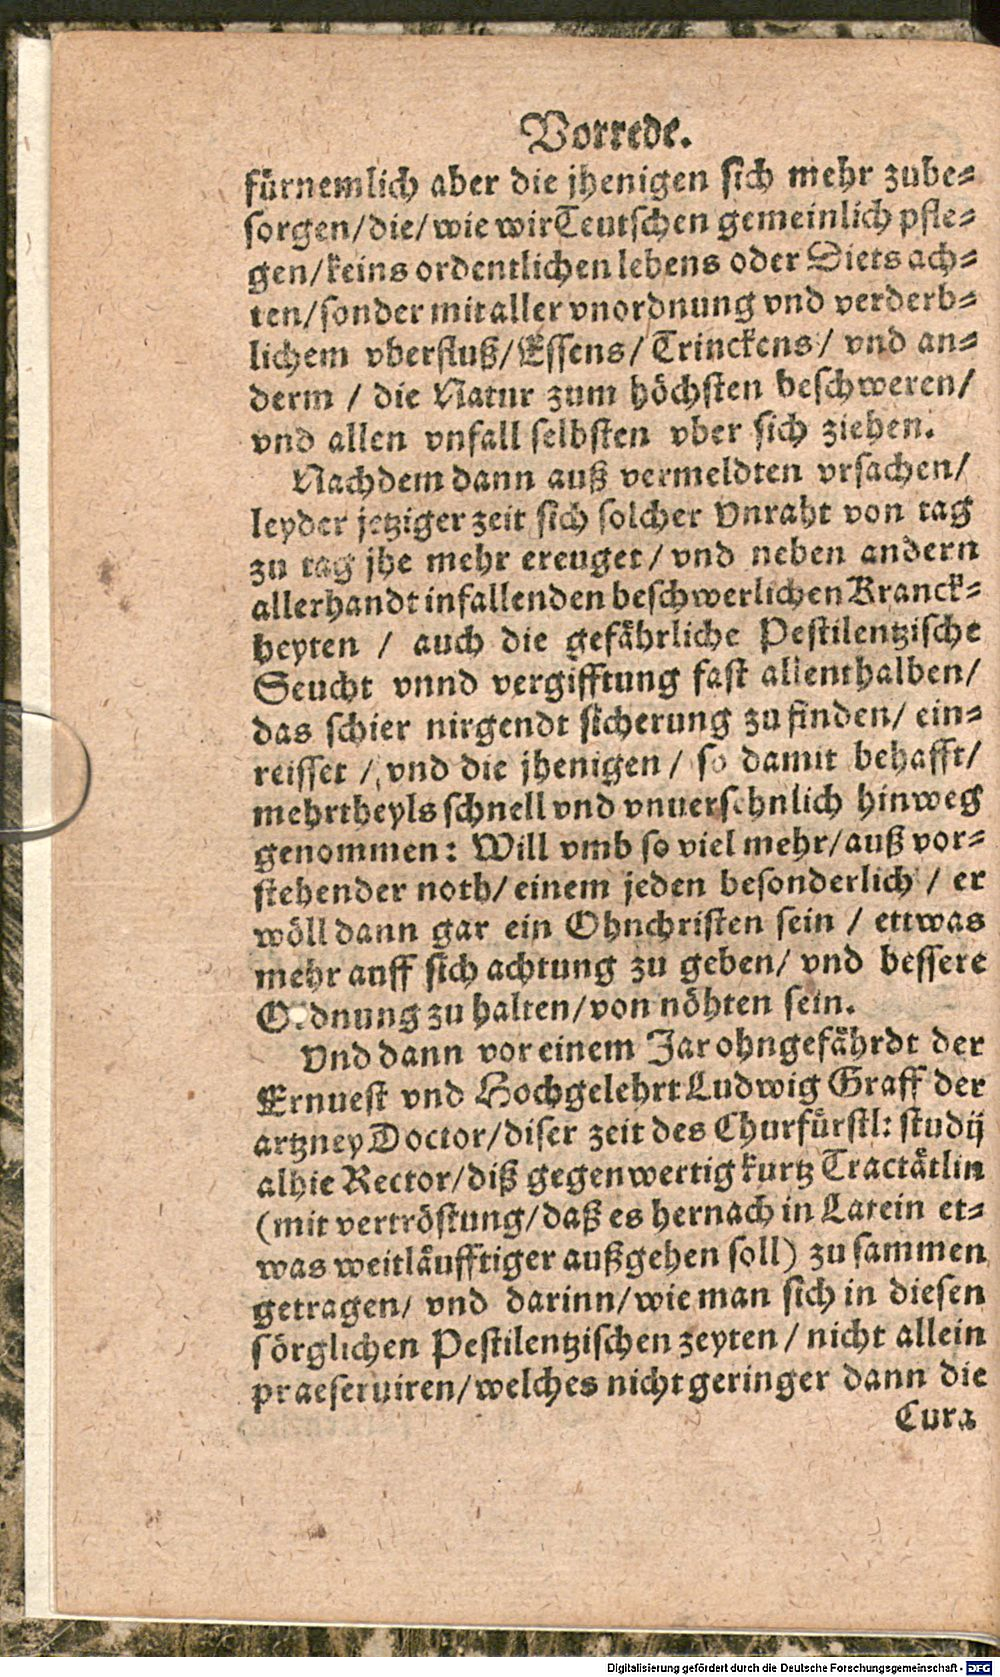 Vorrede.
fürnemlich aber die jhenigen sich mehr zube-
sorgen/die/wie wir Teutschen gemeinlich pfle-
gen/keins ordentlichen lebens oder Diets ach-
ten/sonder mit aller vnordnung vnd verderb-
lichem vberfluß/Essens/Trinckens/ vnd an-
derm / die Natur zum höchsten beschweren/
vnd allen vnfall selbsten vber sich ziehen.
Nachdem dann auß vermeldten vrsachen/
leyder jetziger zeit sich solcher Vnraht von tag
zu tag jhe mehr ereuget/ vnd neben andern
allerhandt infallenden beschwerlichen Kranck-
heyten / auch die gefährliche Pestilentzische
Seucht vnnd vergifftung fast allenthalben/
das schier nirgendt sicherung zu finden/ ein-
reisset / vnd die jhenigen / so damit behafft/
mehrtheyls schnell vnd vnuersehnlich hinweg
genommen: Will vmb so viel mehr/auß vor-
stehender noth/ einem jeden besonderlich / er
wöll dann gar ein Ohnchristen sein / ettwas
mehr auff sich achtung zu geben/ vnd bessere
Ordnung zu halten/von nöhten sein.
Vnd dann vor einem Jar ohngefährdt der
Ernuest vnd Hochgelehrt Ludwig Graff der
artzney Doctor/diser zeit des Churfürstl: studij
alhie Rector/diß gegenwertig kurtz Tractätlin
(mit vertröstung/daß es hernach in Latein et-
was weitläufftiger außgehen soll) zu sammen
getragen/ vnd darinn/wie man sich in diesen
sörglichen Pestilentzischen zeyten / nicht allein
praeseruiren/welches nicht geringer dann die
Cura
Digitalisierung gefördert durch die Deutsche Forschungsgemeinschaft - DFG